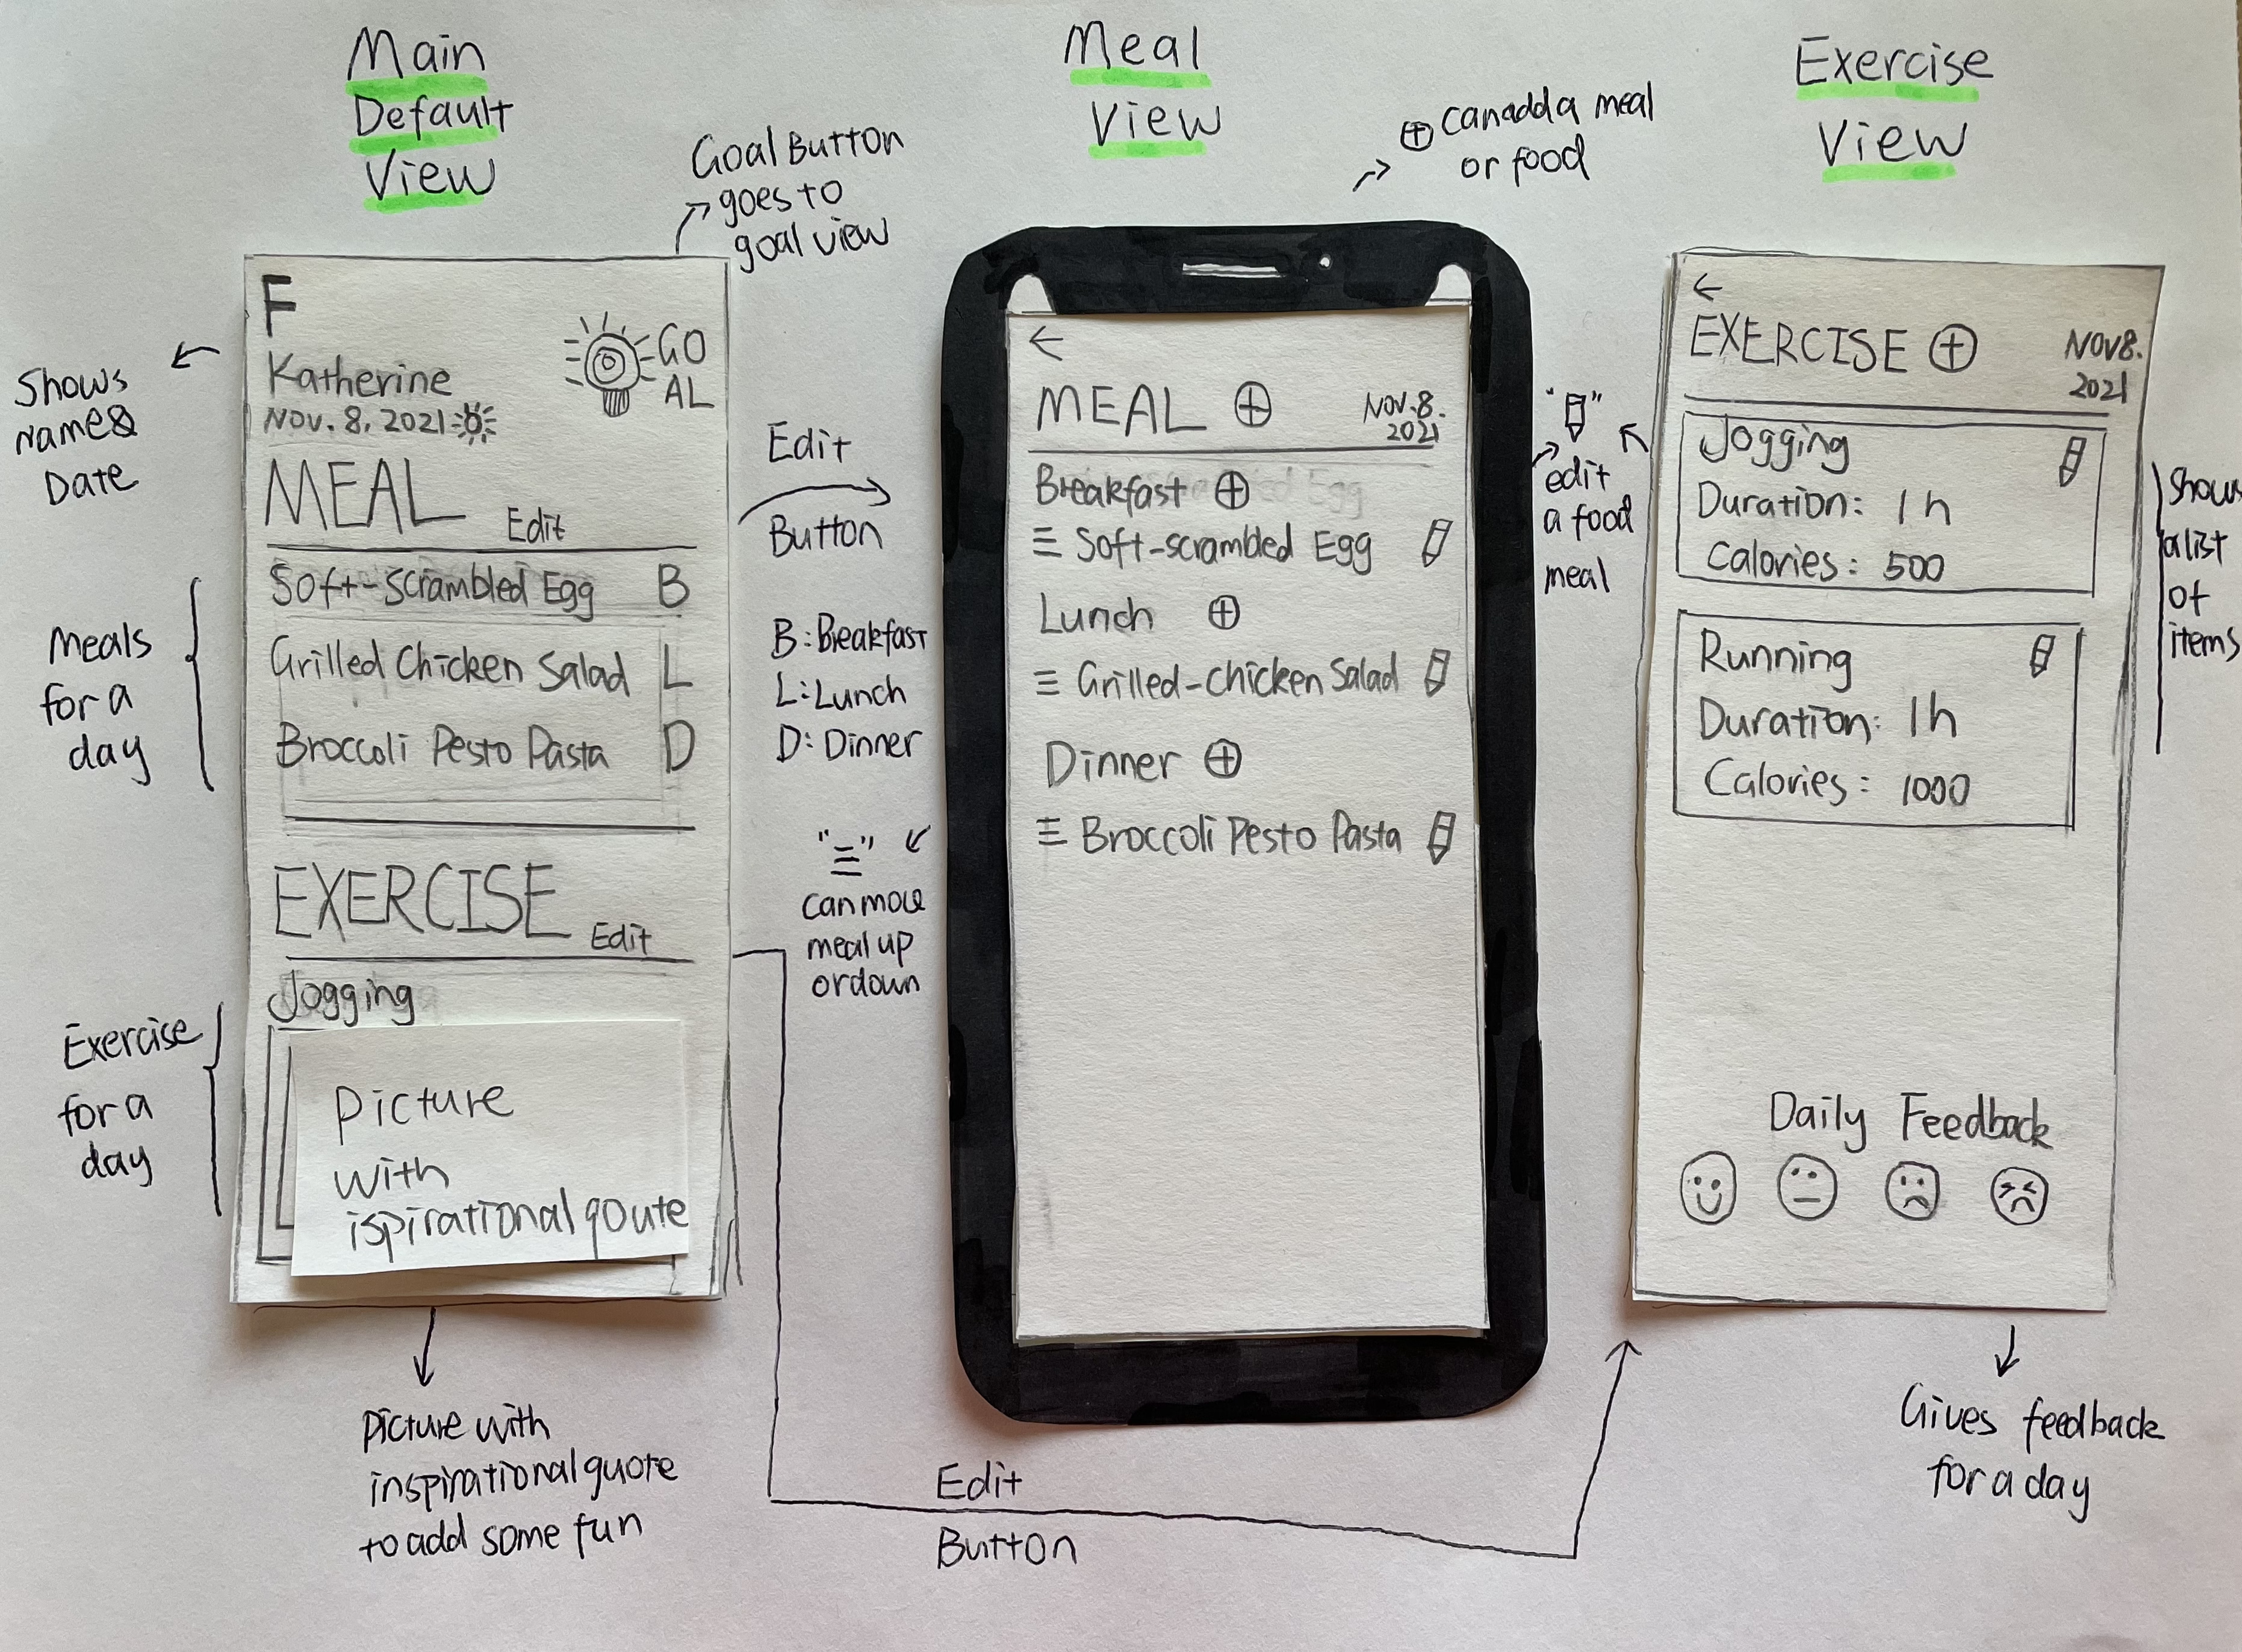 Main
Default
View
Goal Button
goes to
goal view
Shows
Name&
Date
F
Katherine
NOV. 8, 2021
GO
AL
MEAL Edit
Soft-Scrambled Egg B
Grilled Chicken Salad L
Broccoli Pesto Pasta D
Meals
for a
day
EXERCISE Edit
Jogging
Exercise
for a
day
Picture
with
ispirational qoute
Picture with
inspirational quote
to add some fun
Edit
Button
B: Breakfast
L: Lunch
D: Dinner
"≡"
can move
meal up
or down
Edit
Button
Meal
View
⊕ can add a meal
or food
←
MEAL ⊕ NOV. 8.
2021
Breakfast ⊕
≡ Soft-scrambled Egg
Lunch ⊕
≡ Grilled-chicken Salad
Dinner ⊕
≡ Broccoli Pesto Pasta
" "
edit
a food
meal
Exercise
View
←
EXERCISE ⊕ NOV 8.
2021
Jogging
Duration: 1h
Calories: 500
Running
Duration: 1h
Calories: 1000
Shows
a list
of
items
Daily Feedback
Gives feedback
for a day